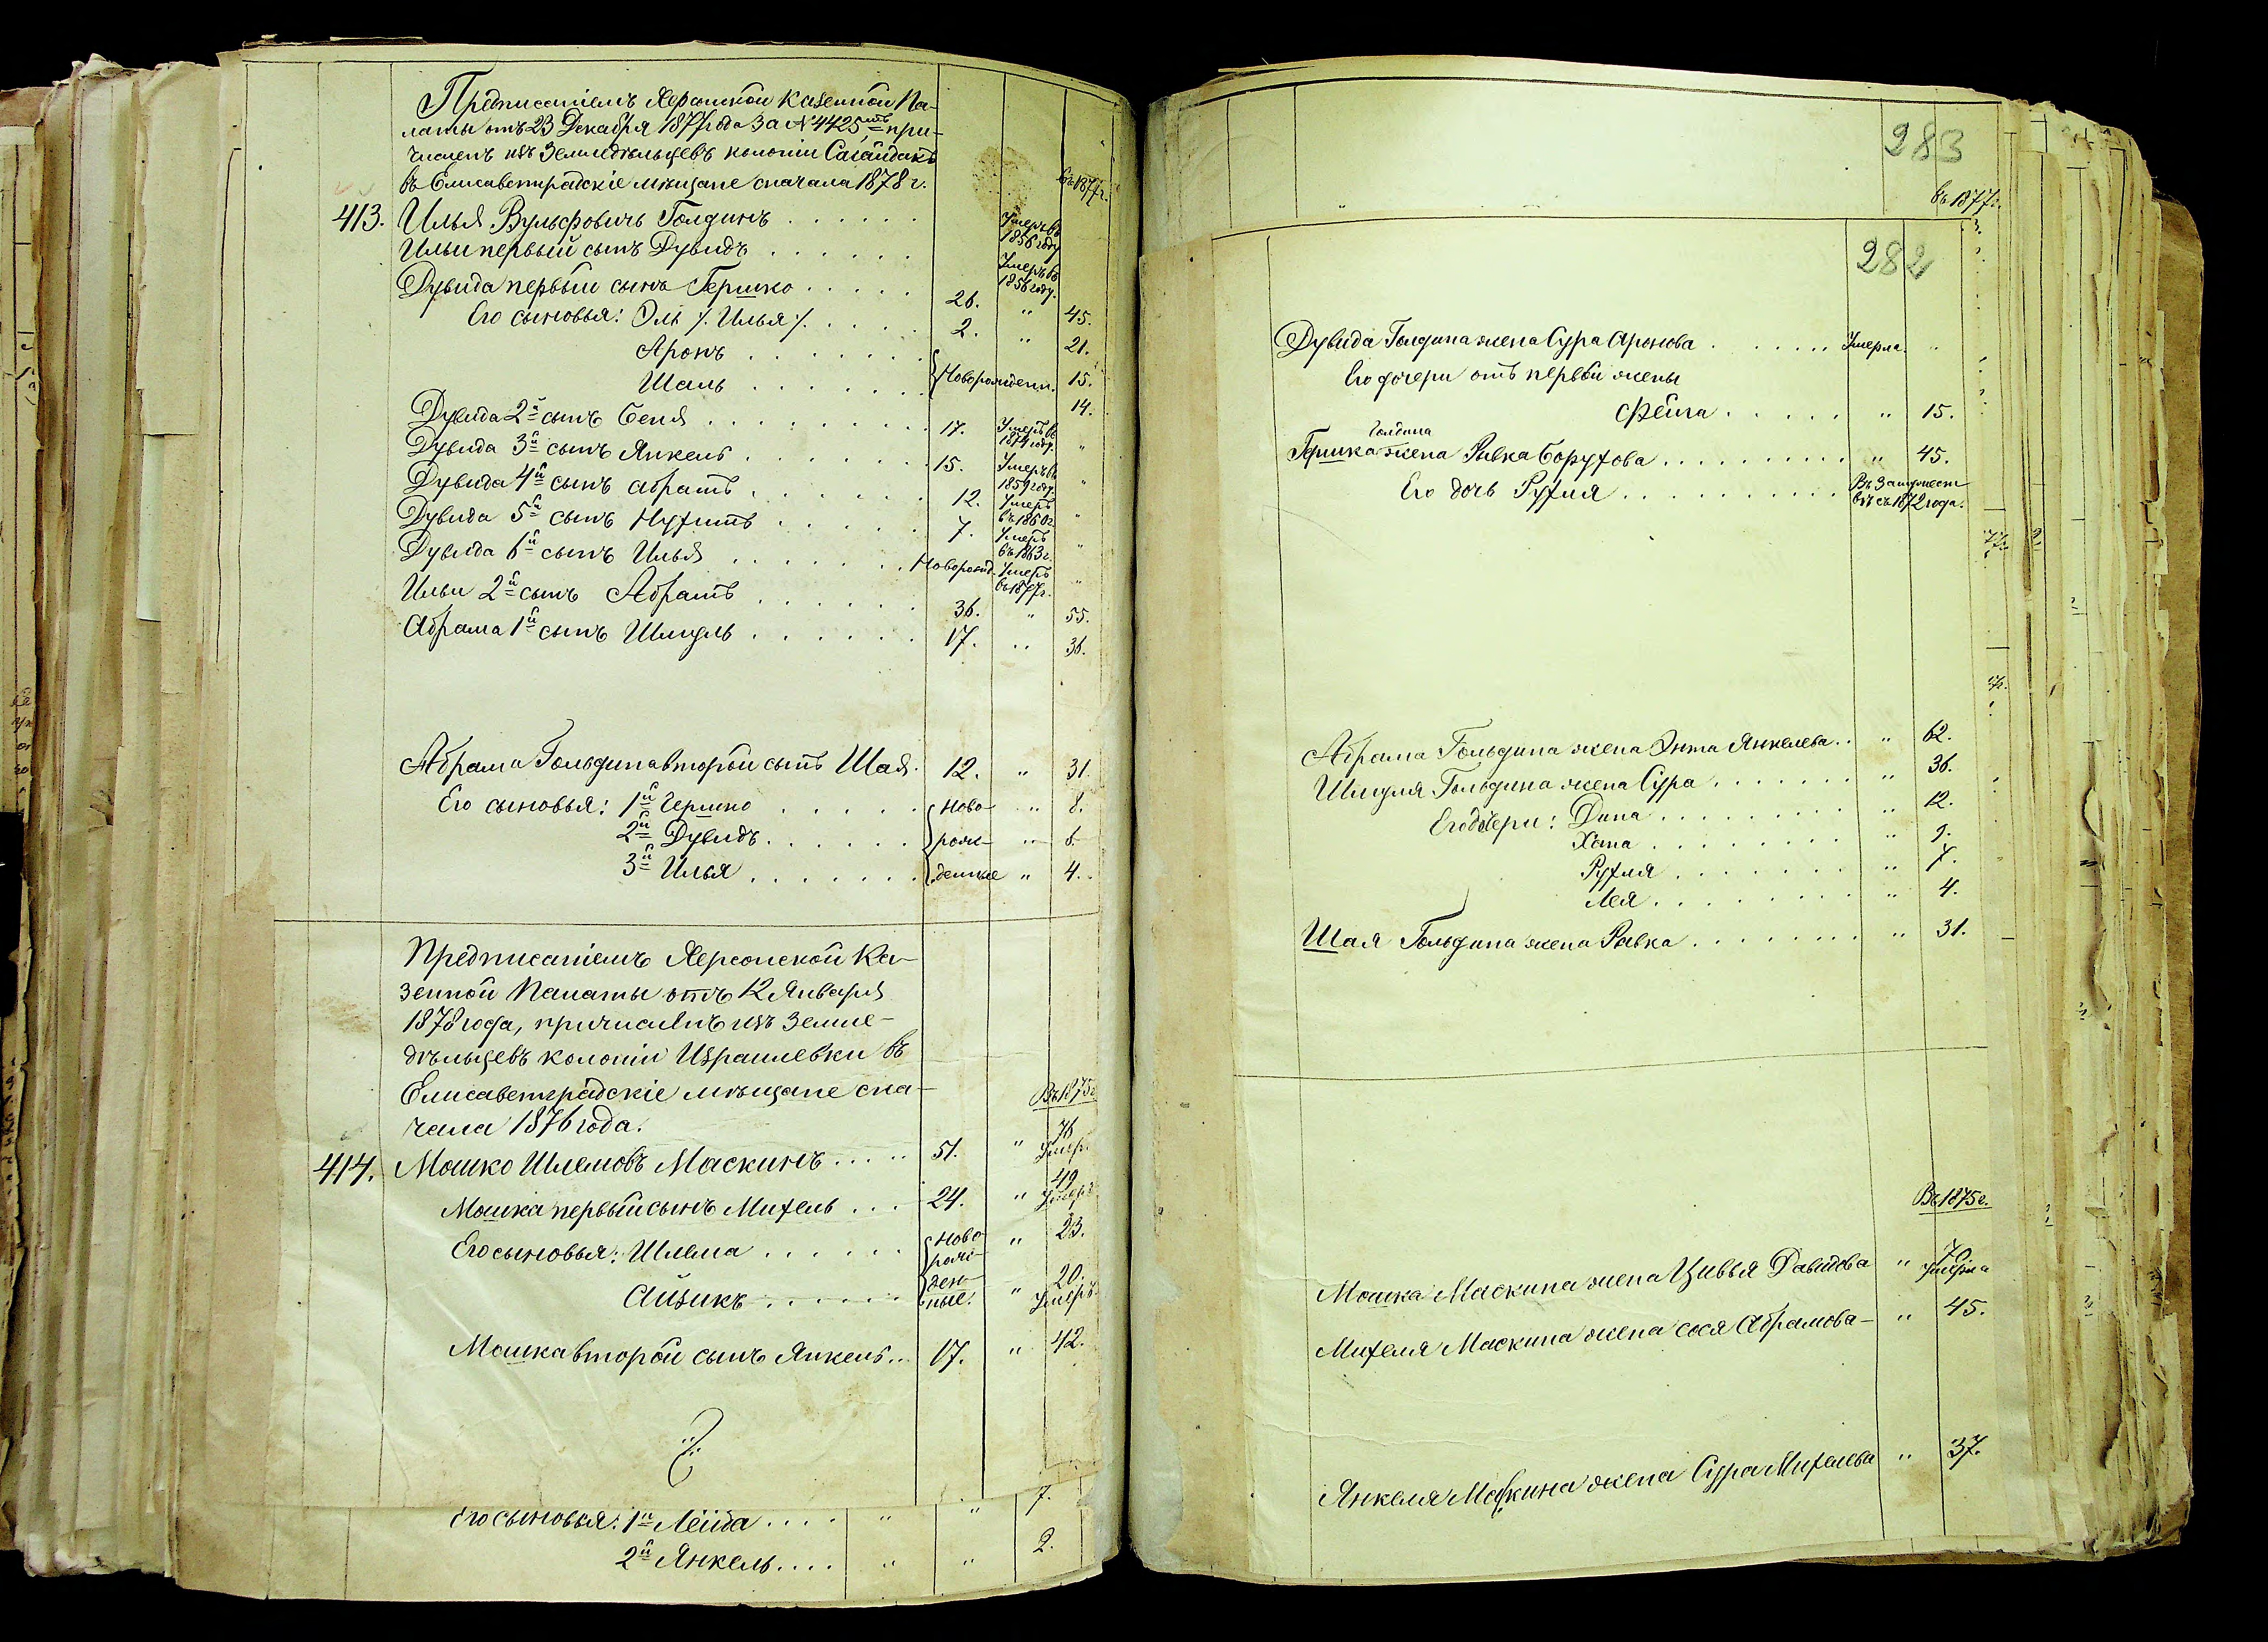 Предписанiемъ Херсонской Казенной Па-
латы отъ 23 Декабря 1877 года за № 4425, при-
численъ изъ Земледѣльцевъ колонiи Сагайдакъ
въ Елисаветградскiе мѣщане сначала 1878 г.
въ 1877 г.
413. Илья Вульфовичъ Голдинъ . . . . . . Умеръ въ 1856 году
Ильи первый сынъ Дувидъ . . . . . . Умеръ въ 1856 году.
Дувида первый сынъ Гершко . . . . . 26. " 45.
Его сыновья: Эль /: Илья /: . . . . 2. " 21.
Аронъ . . . . . . . Новорожденн. 15.
Шаль . . . . . . . 14.
Дувида 2й сынъ Беня . . . . . . . . . 17. Умеръ въ 1874 году. "
Дувида 3й сынъ Янкель . . . . . . . 15. Умеръ въ 1859 году. "
Дувида 4й сынъ Абрамъ . . . . . . . 12. Умеръ въ 1860 г. "
Дувида 5й сынъ Нухимъ . . . . . . 7. Умеръ въ 1863 г. "
Дувида 6й сынъ Илья . . . . . . . Новорожд. Умеръ въ 1877 г. "
Ильи 2й сынъ Абрамъ . . . . . . 36. " 55.
Абрама 1й сынъ Шмуль . . . . . . 17. " 36.
Абрама Гольдина второй сынъ Шая. 12. " 31.
Его сыновья: 1й Гершко . . . . . . Ново- " 8.
2й Дувидъ . . . . . . рож- " 6.
3й Илья . . . . . . . денные " 4.
Предписанiемъ Херсонской Ка-
зенной Палаты отъ 12 Января
1878 года, причисленъ изъ Земле-
дѣльцевъ колонiи Израилевки въ
Елисаветградскiе мѣщане сна-
чала 1876 года.
Въ 1875 г.
414. Мошко Шлемовъ Маскинъ . . . . . 51. " 76 Умер.
Мошка первый сынъ Михель . . . 24. " 49 Умеръ
Его сыновья: Шлема . . . . . . Ново- рож- " 23.
Айзикъ . . . . . . ден- ные. " 20. Умеръ.
Мошка второй сынъ Янкель . . 17. " 42.
Его сыновья: 1й Лейба . . . . " " 7.
2й Янкель . . . . " " 2.
283
въ 1877 г.
282
Дувида Голдина жена Сура Аронова . . . . . . Умерла. "
Его дочери отъ первой жены
Фейга . . . . . " 15.
Голдина
Гершка жена Ривка Борухова . . . . . . . . . . " 45.
Его дочь Рухля . . . . . . . . . . Въ замужест- вѣ съ 1872 года.
Абрама Гольдина жена Энта Янкелева . . " 62.
Шмуля Гольдина жена Сура . . . . . . . " 36.
Его дочери: Дина . . . . . . . . . " 12.
Хана . . . . . . . . " 9.
Рухля . . . . . . . " 7.
Лея . . . . . . . . . " 4.
Шая Гольдина жена Ривка . . . . . . . " 31.
Въ 1875 г.
Мошка Маскина жена Цивья Давидова " 76 Умерла
Михеля Маскина жена Сося Абрамова - " 45.
Янкеля Маскина жена Сура Михелева " 37.